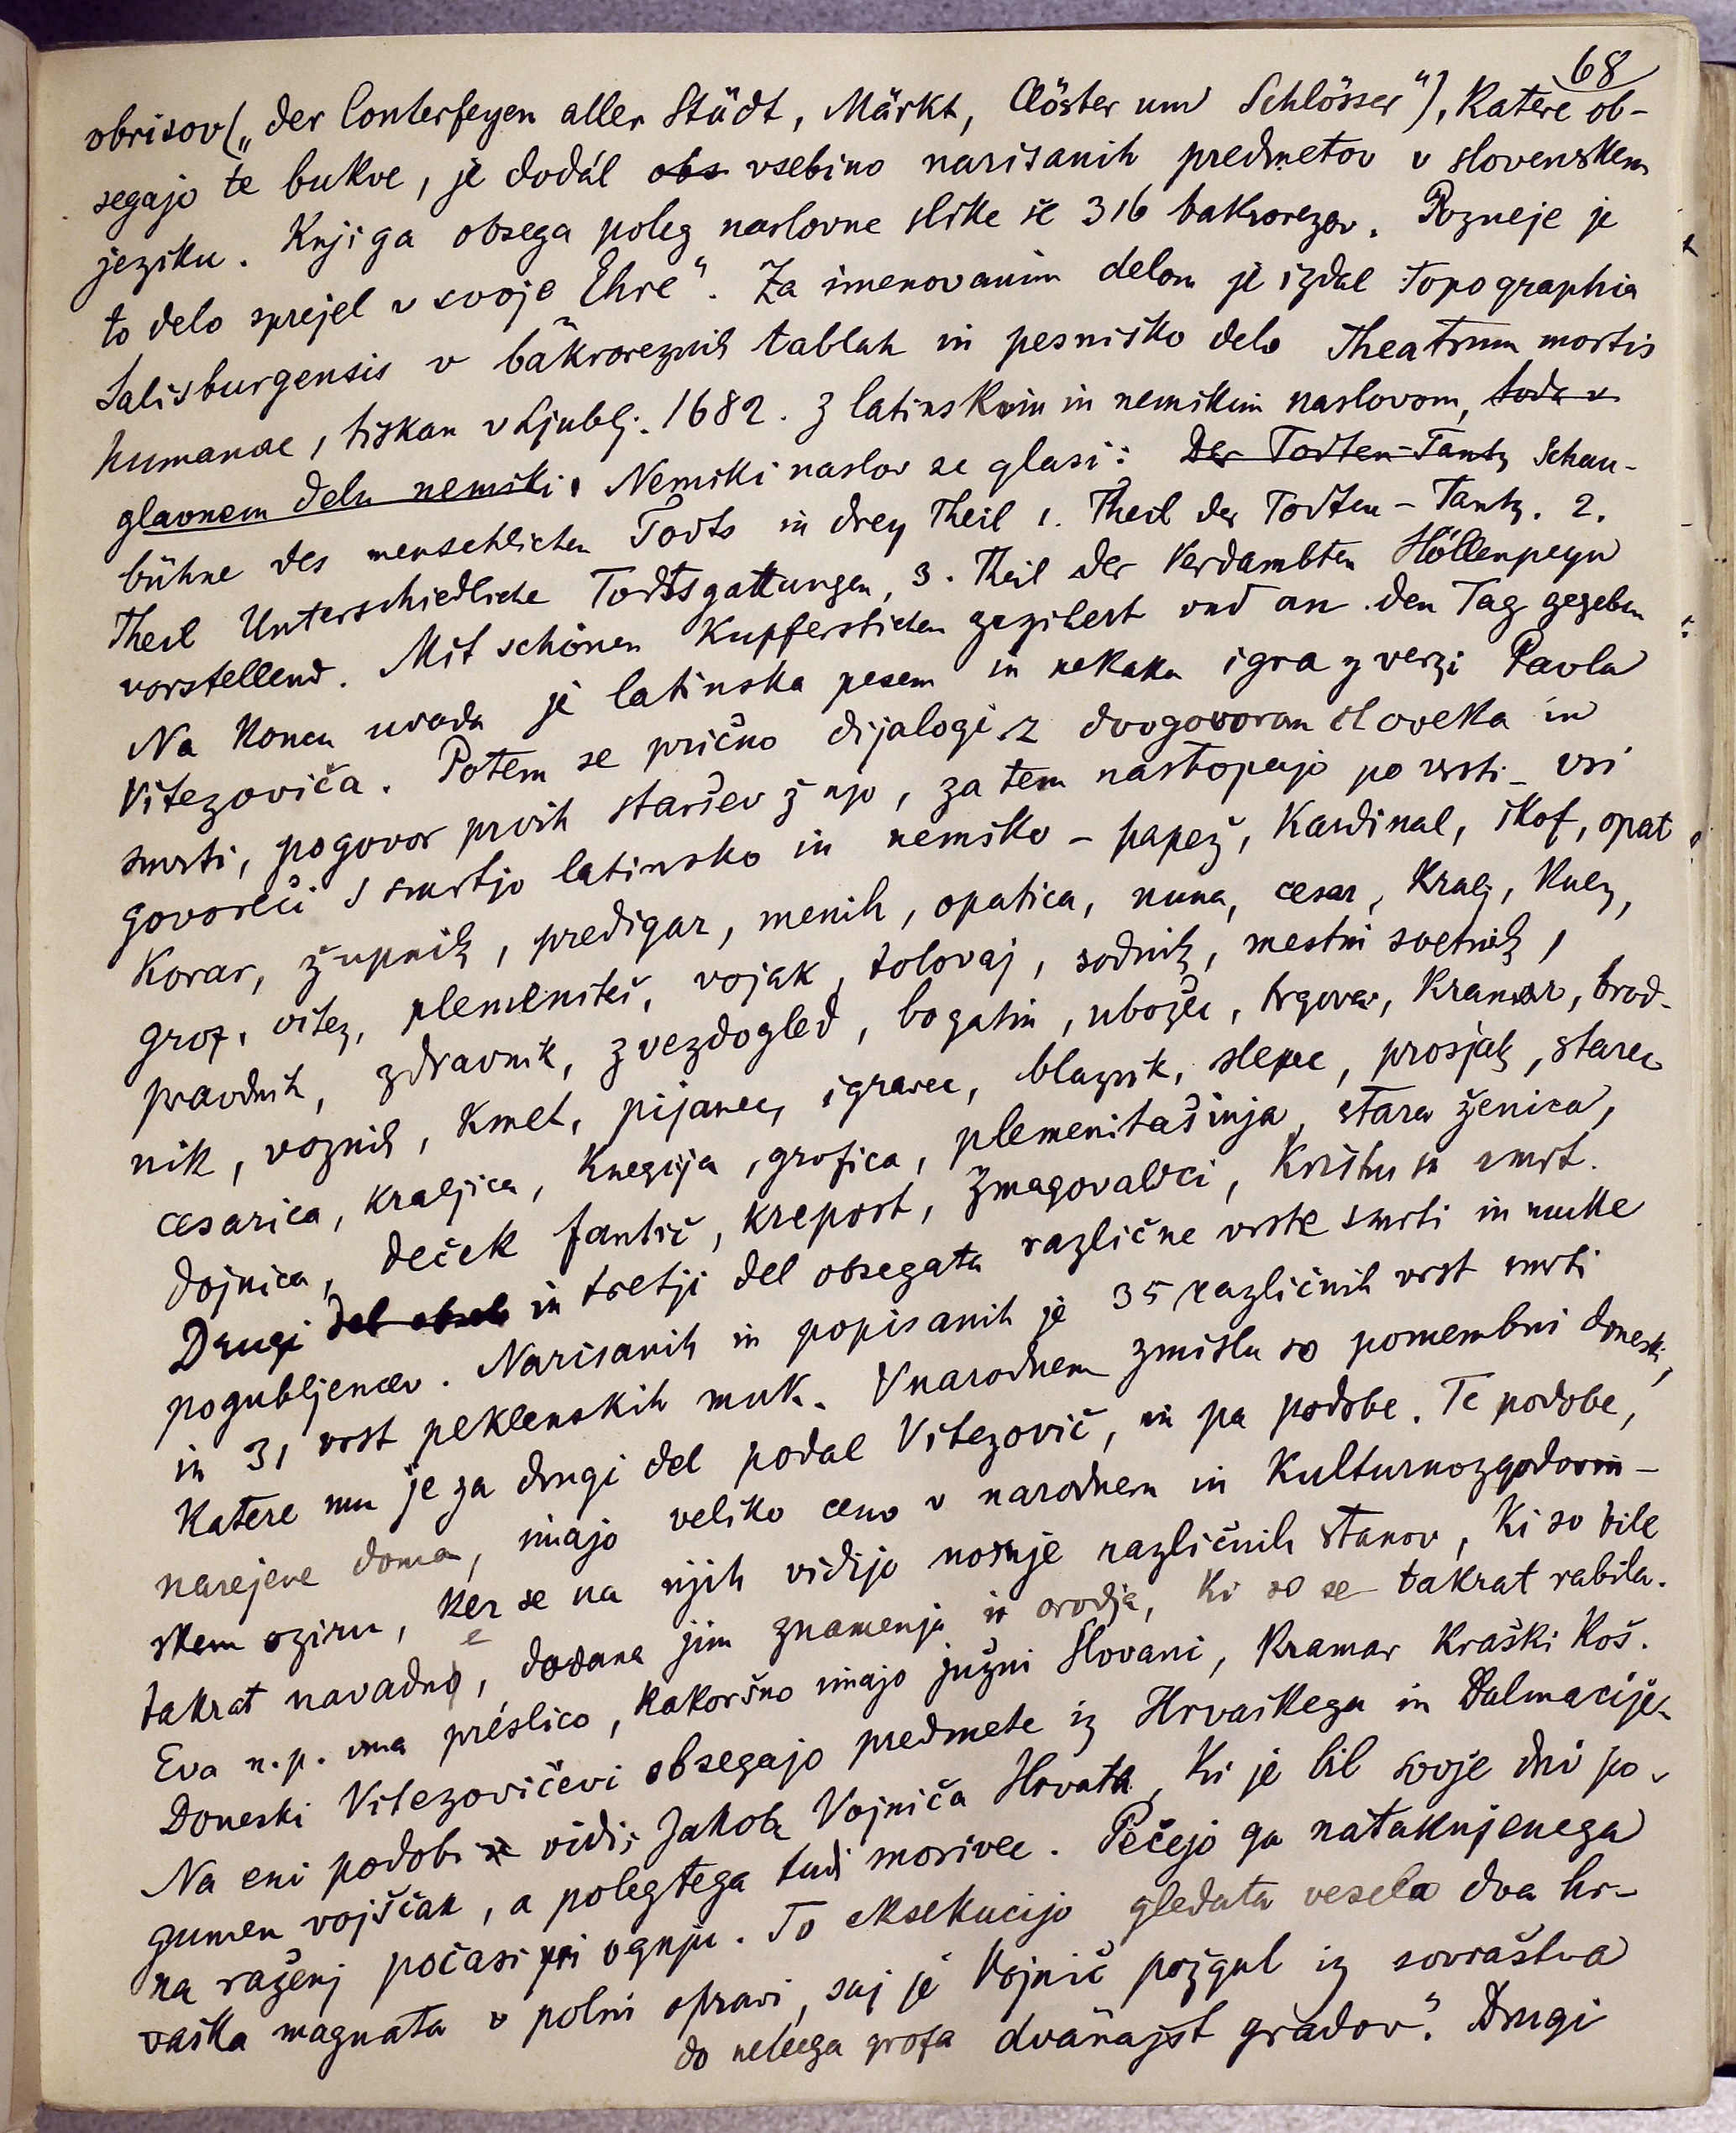 68
obrisov („der Conterfeyen aller Städt, Märkt, Clöster und Schlösser"), katere ob-
segajo te bukve, je dodal obs vsebino narisanih predmetov v slovenskem
jeziku. Knjiga obsega poleg naslovne slike še 316 bakrorezov. Pozneje je
to delo sprejel v svoje „Ehre". Za imenovanim delom je izdal Topographia
Salisburgensis v bakroreznih tablah in pesniško delo Theatrum mortis
humanae, tiskan v Ljublj. 1682. z latinskim in nemškim naslovom, toda v
glavnem delu nemški. Nemški naslov se glasi: Der Todten-Tantz Schau-
bühne des menschlichen Todts in drey Theil 1. Theil der Todten-Tantz. 2.
Theil Unterschiedliche Todtsgattungen, 3. Theil der Verdambten Höllenpeyn
vorstellend. Mit schönen Kupferstichen gezihert und an den Tag gegeben
Na koncu uvoda je latinska pesem in nekaka igra z verzi Pavla
Vitezoviča. Potem se prično dijalogi z dvogovorom človeka in
smrti, pogovor prvih staršev ž njo, za tem nastopajo po vrsti vsi
govoreči s smrtjo latinsko in nemško - papež, kardinal, škof, opat
korar, župnik, predigar, menih, opatica, nuna, cesar, kralj, knez,
grof, vitez, plemenitaš, vojak, tolovaj, sodnik, mestni svetnik,
pravdnik, zdravnik, zvezdogled, bogatin, ubožec, trgovec, kramar, brod-
nik, voznik, kmet, pijanec, igravec, blaznik, slepec, prosjak, starec
cesarica, kraljica, kneginja, grofica, plemenitašinja, stara ženica,
dojnica, deček fantič, krepost, zmagovalci, Kristus in smrt.
Drugi del obseh in tretji del obsegata različne vrste smrti in muke
pogubljencev. Narisanih in popisanih je 35 različnih vrst smrti
in 31 vrst peklenskih muk. V narodnem zmislu so pomembni doneski,
katere mu je za drugi del podal Vitezovič, in pa podobe. Te podobe,
narejene doma, imajo veliko ceno v narodnem in kulturnozgodovin-
skem oziru, ker se na njih vidijo nošnje različnih stanov, ki so bile
takrat navadne, dodana jim znamenja in orodja, ki so se takrat rabila.
Eva n.p. ima préslico, kakoršno imajo južni Slovani, kramar kraški koš.
Doneski Vitezovičevi obsegajo predmete iz Hrvaškega in Dalmacije.
Na eni podobi se vidi Jakob Vojniča Hrvata, ki je bil svoje dni po-
gumen vojščak, a poleg tega tudi morivec. Pečejo ga nataknjenega
na raženj počasi pri ognju. To eksekucijo gledata vesela dva hr-
vaška magnata v polni opravi, saj je Vojnič požgal iz sovraštva
do nekega grofa dvanajst gradov". Drugi